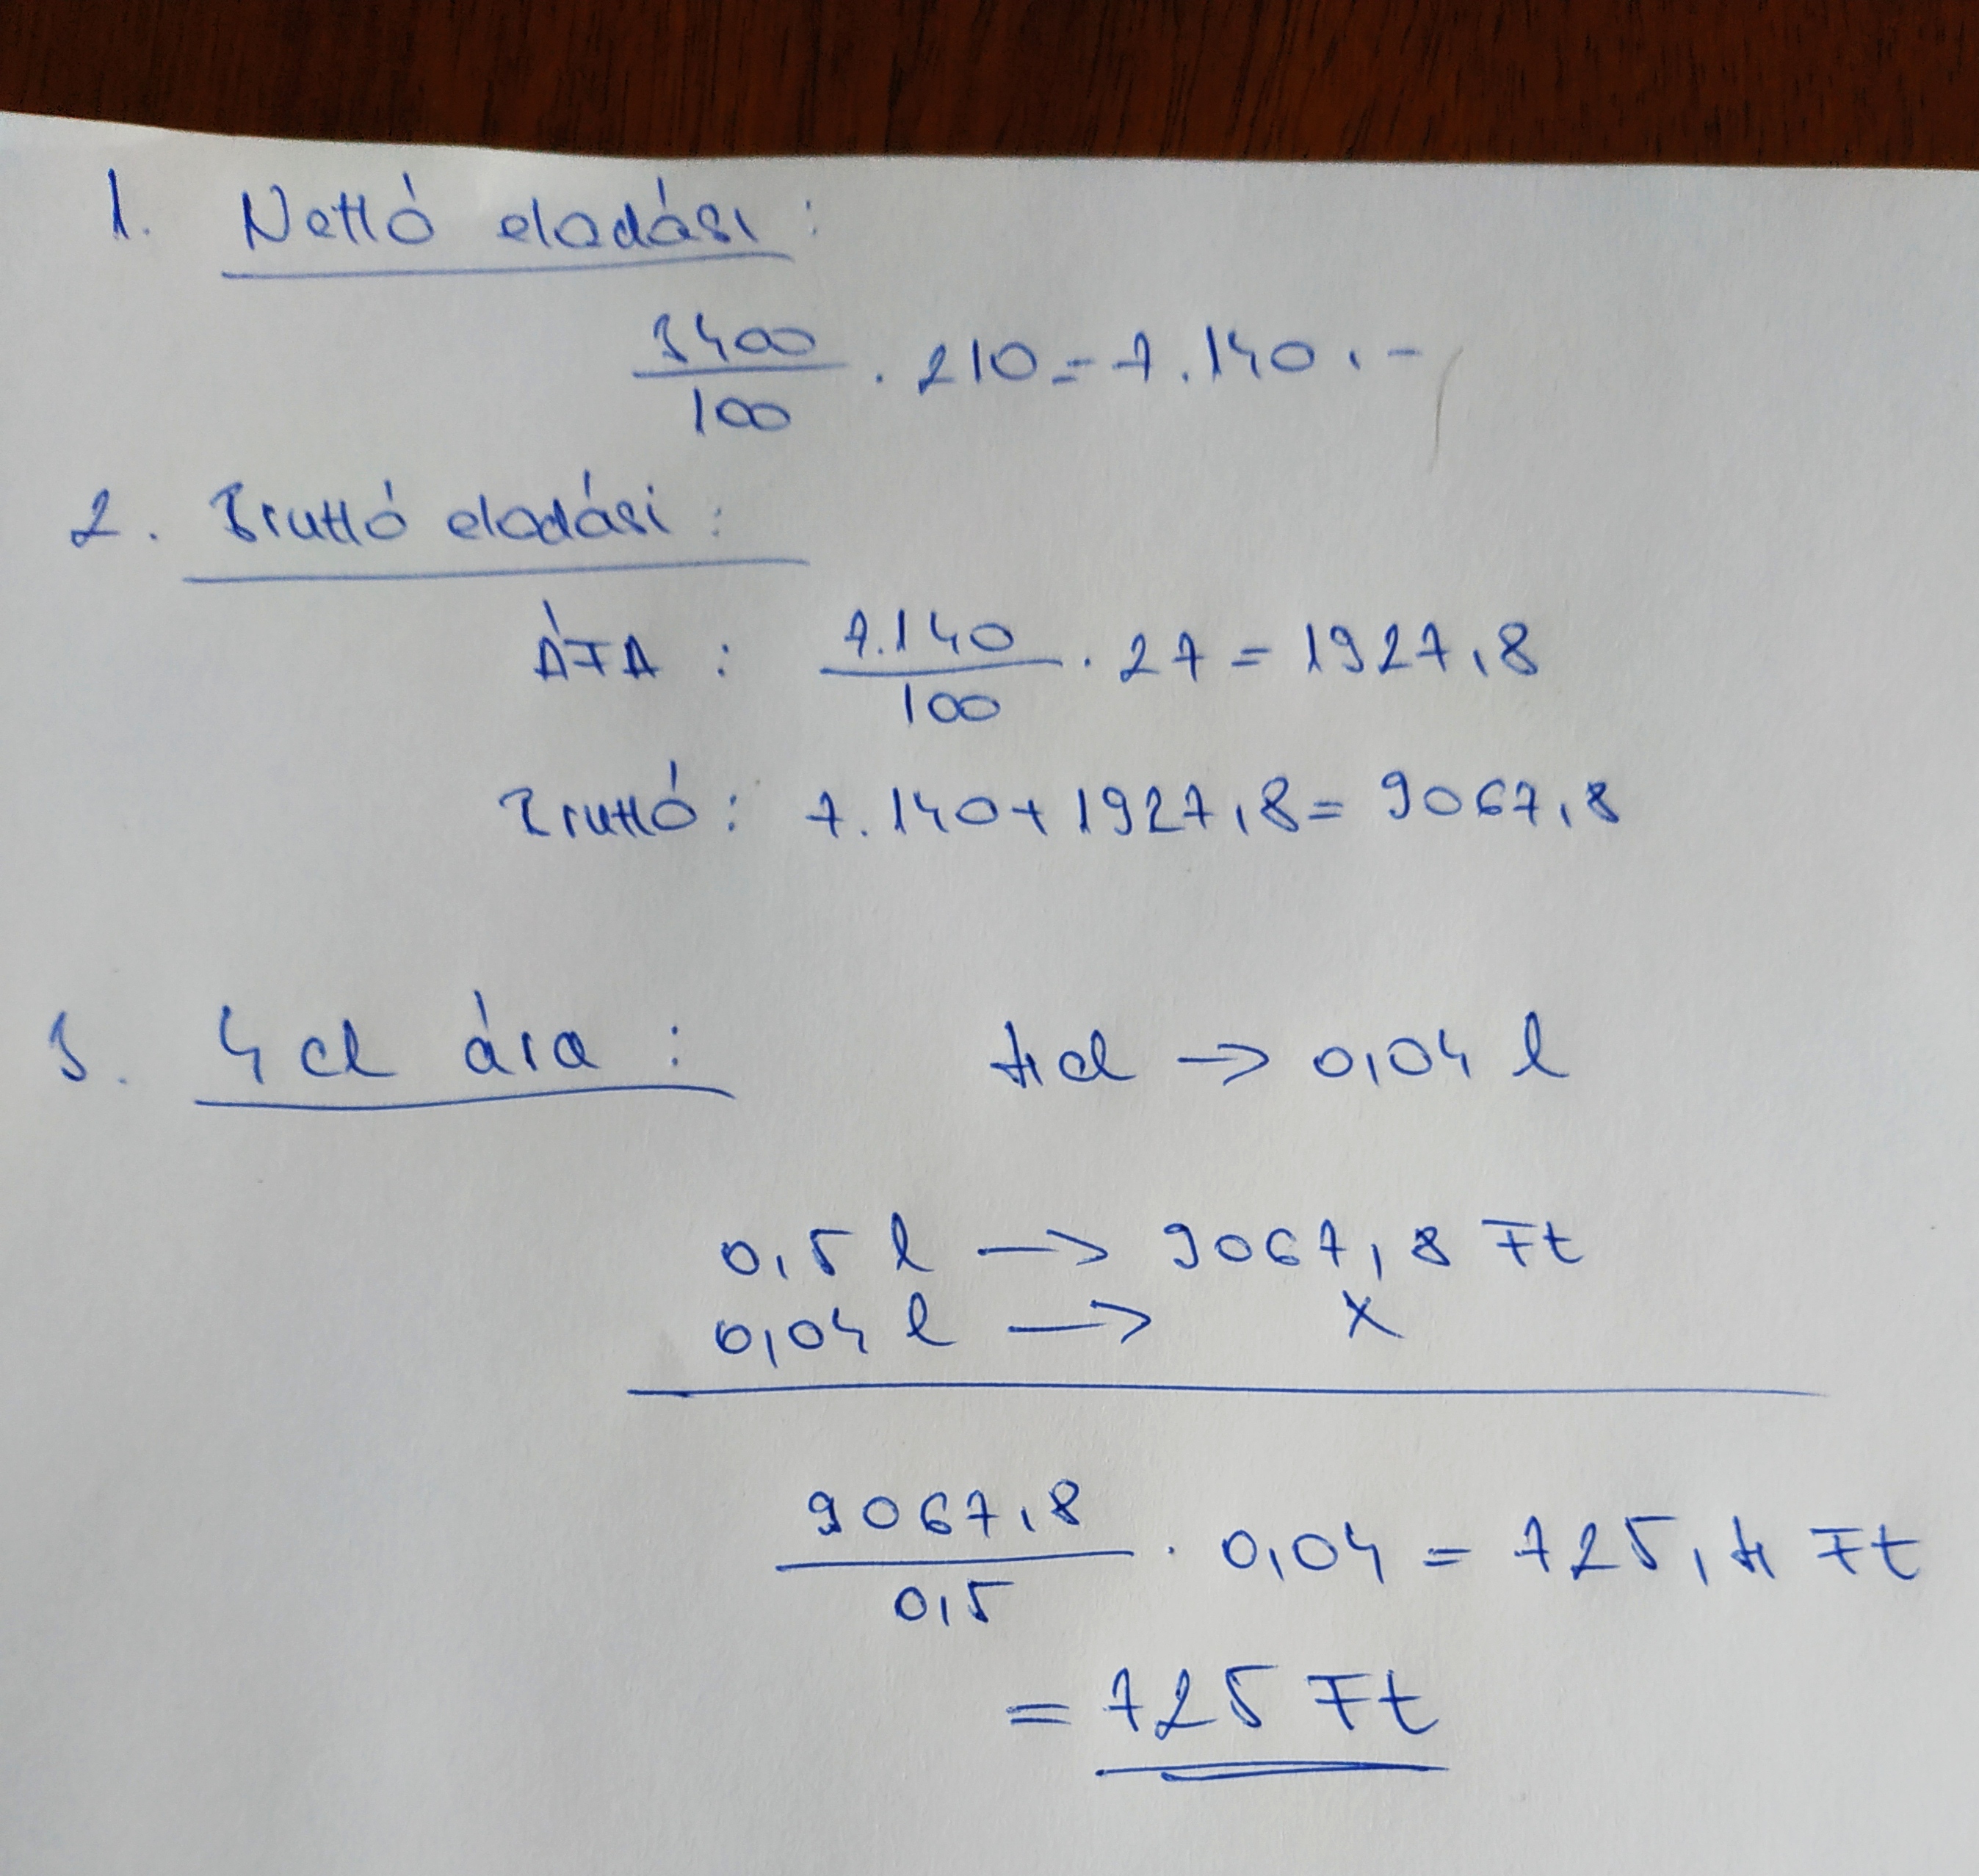 1. Nettó eladási:
3400
100 · 210 = 7.140.-
2. Bruttó eladási:
ÁFA : 7.140
100 · 27 = 1927,8
Bruttó: 7.140 + 1927,8 = 9067,8
3. 4 cl ára : 4 cl -> 0,04 l
0,5 l -> 9067,8 Ft
0,04 l -> X
9067,8
0,5 · 0,04 = 725,4 Ft
= 725 Ft